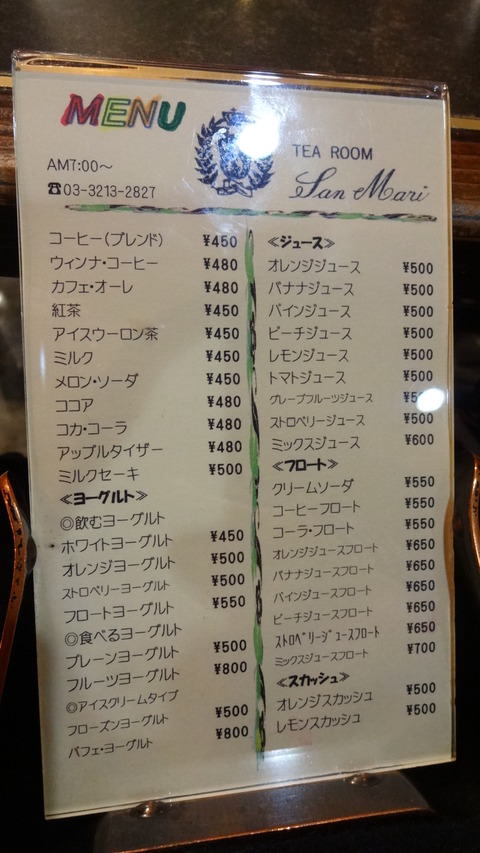 MENU
AM7:00〜
☎03-3213-2827
TEA ROOM
San Mari
コーヒー(ブレンド) ¥450
ウィンナ・コーヒー ¥480
カフェ・オーレ ¥480
紅茶 ¥450
アイスウーロン茶 ¥450
ミルク ¥450
メロン・ソーダ ¥450
ココア ¥480
コカ・コーラ ¥480
アップルタイザー ¥480
ミルクセーキ ¥500
≪ヨーグルト≫
◎飲むヨーグルト
ホワイトヨーグルト ¥450
オレンジヨーグルト ¥500
ストロベリーヨーグルト ¥500
フロートヨーグルト ¥550
◎食べるヨーグルト
プレーンヨーグルト ¥500
フルーツヨーグルト ¥800
◎アイスクリームタイプ
フローズンヨーグルト ¥500
パフェ・ヨーグルト ¥800
≪ジュース≫
オレンジジュース ¥500
バナナジュース ¥500
パインジュース ¥500
ピーチジュース ¥500
レモンジュース ¥500
トマトジュース ¥500
グレープフルーツジュース
ストロベリージュース ¥500
ミックスジュース ¥600
≪フロート≫
クリームソーダ ¥550
コーヒーフロート ¥550
コーラ・フロート ¥550
オレンジジュースフロート ¥650
バナナジュースフロート ¥650
パインジュースフロート ¥650
ピーチジュースフロート ¥650
ストロベリージュースフロート ¥650
ミックスジュースフロート ¥700
≪スカッシュ≫
オレンジスカッシュ ¥500
レモンスカッシュ ¥500